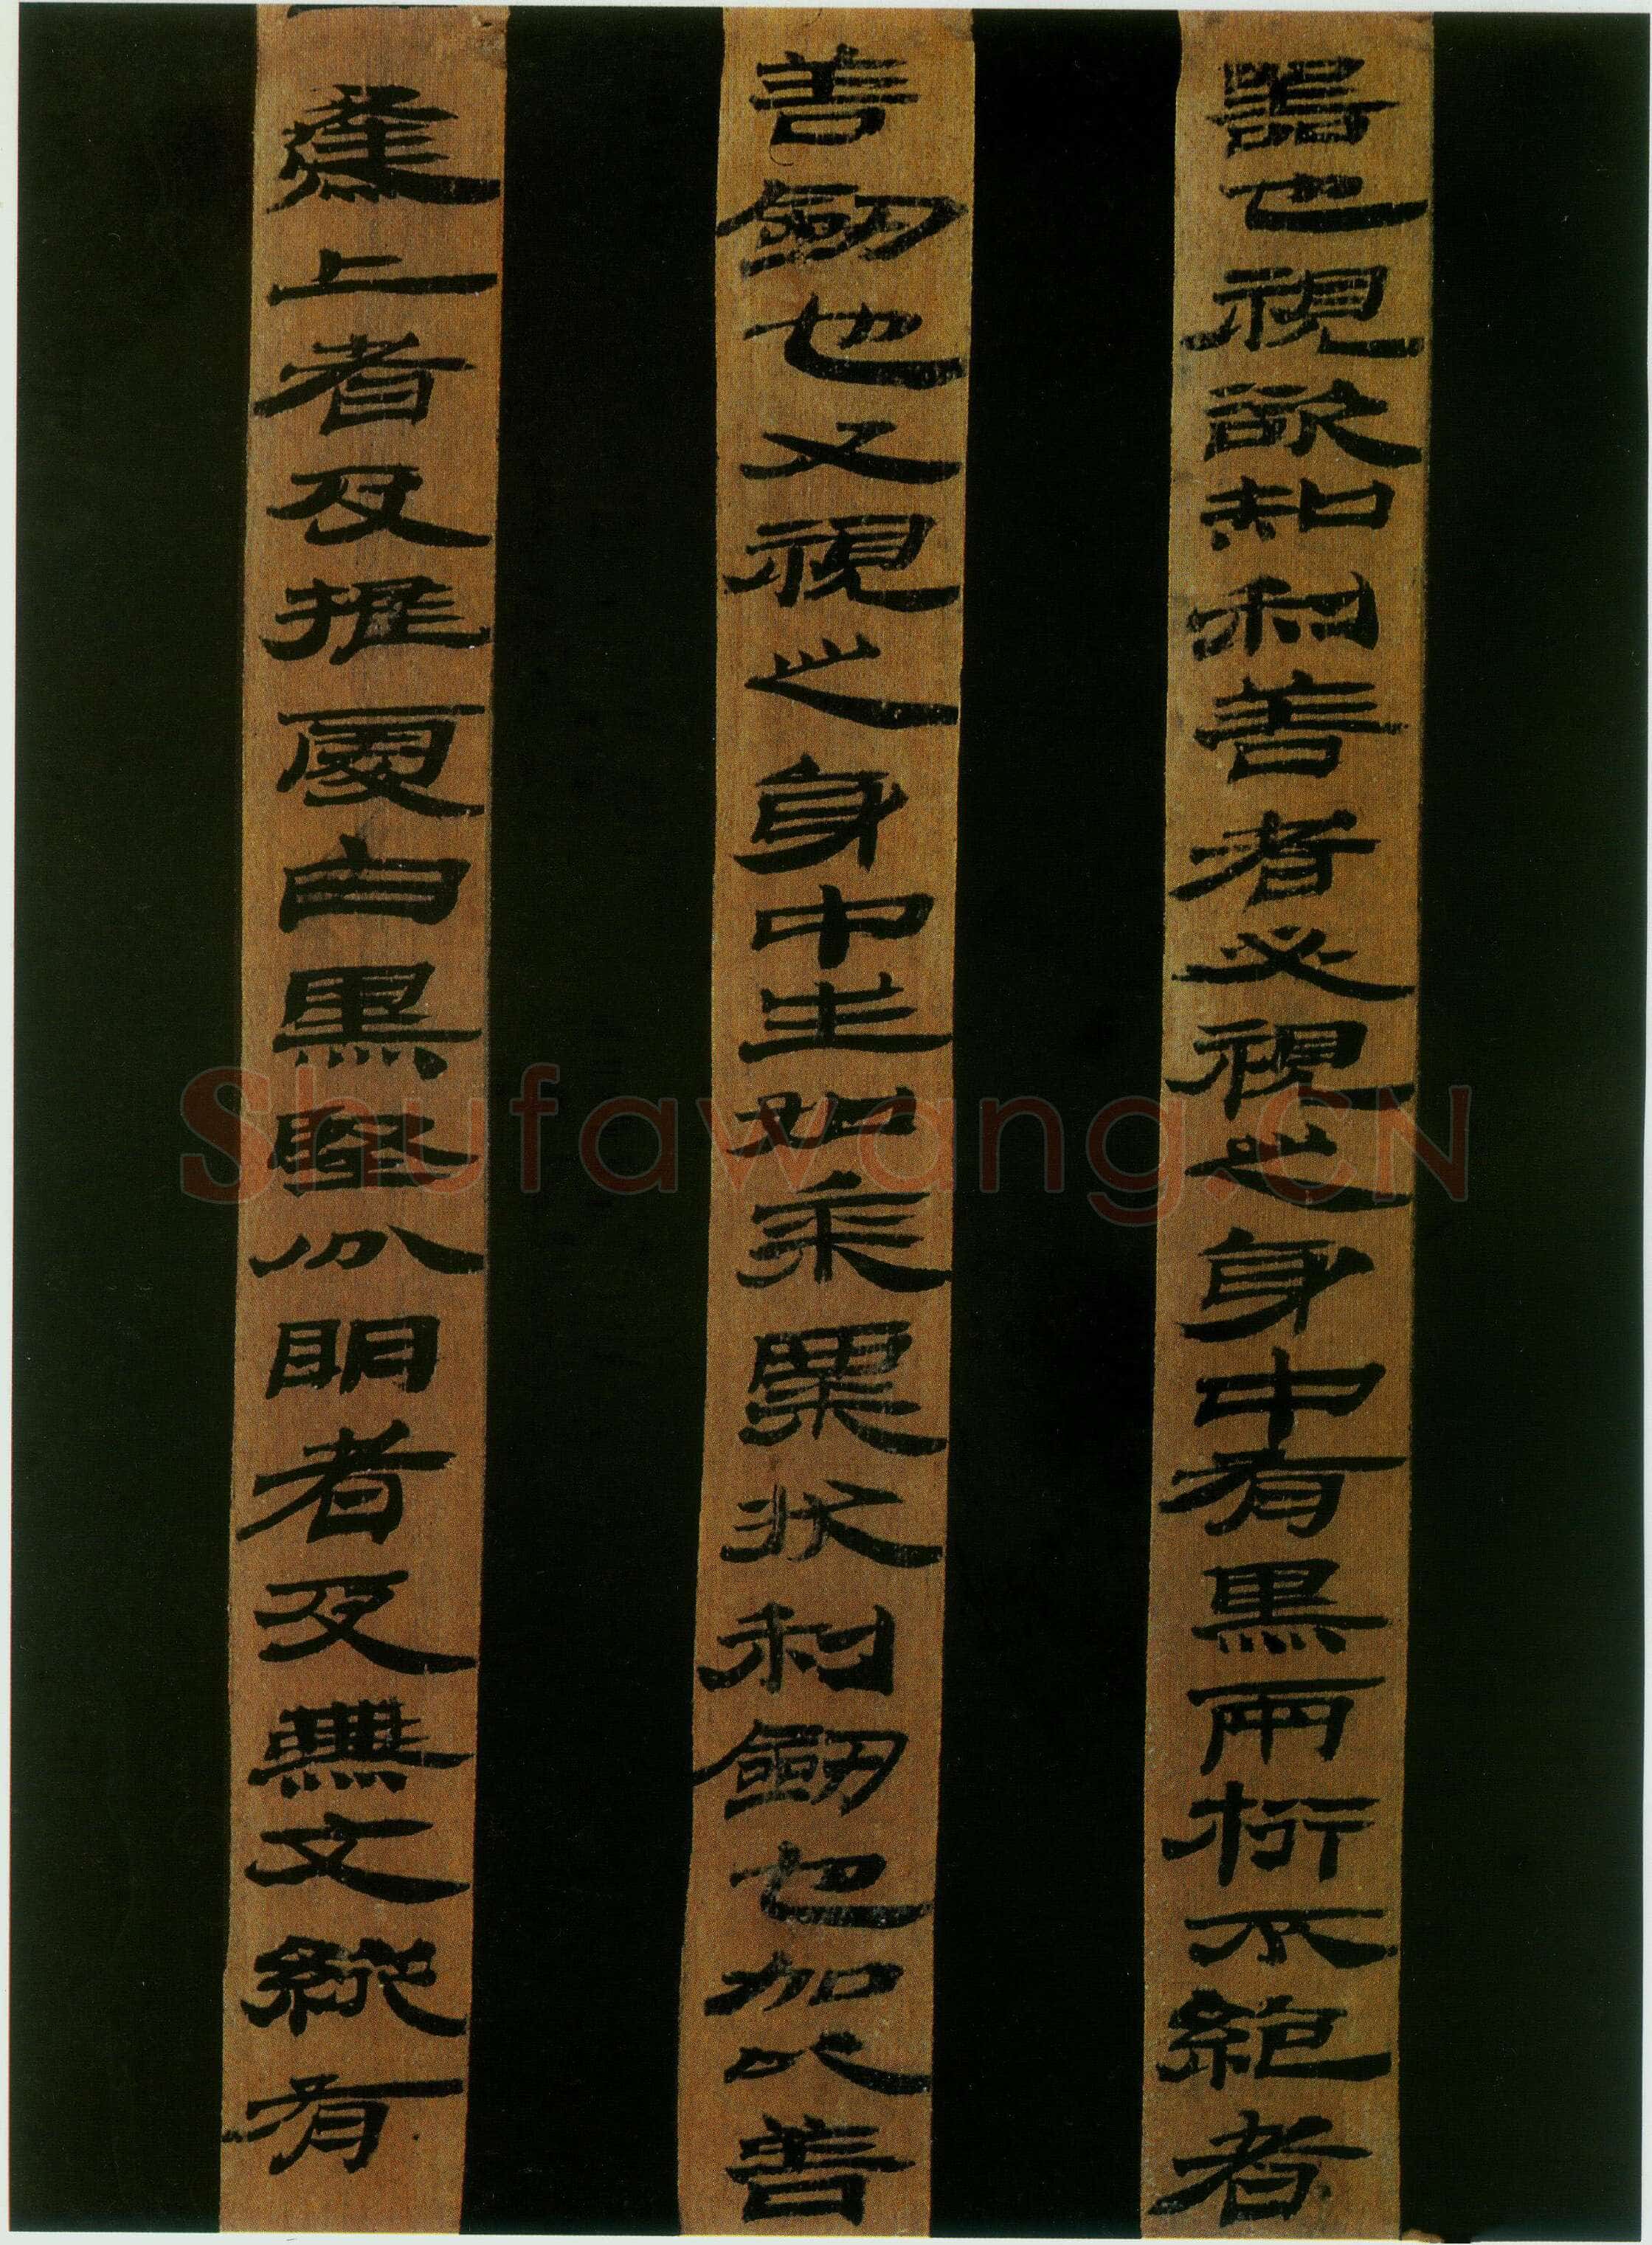 器也視欲知利善者必視之身中有黑兩桁不絕者
善劒也又視之身中生如黍粟狀利劒也加以善
上者及推處白黑堅分明者及無文縱有
Shufawang.CN